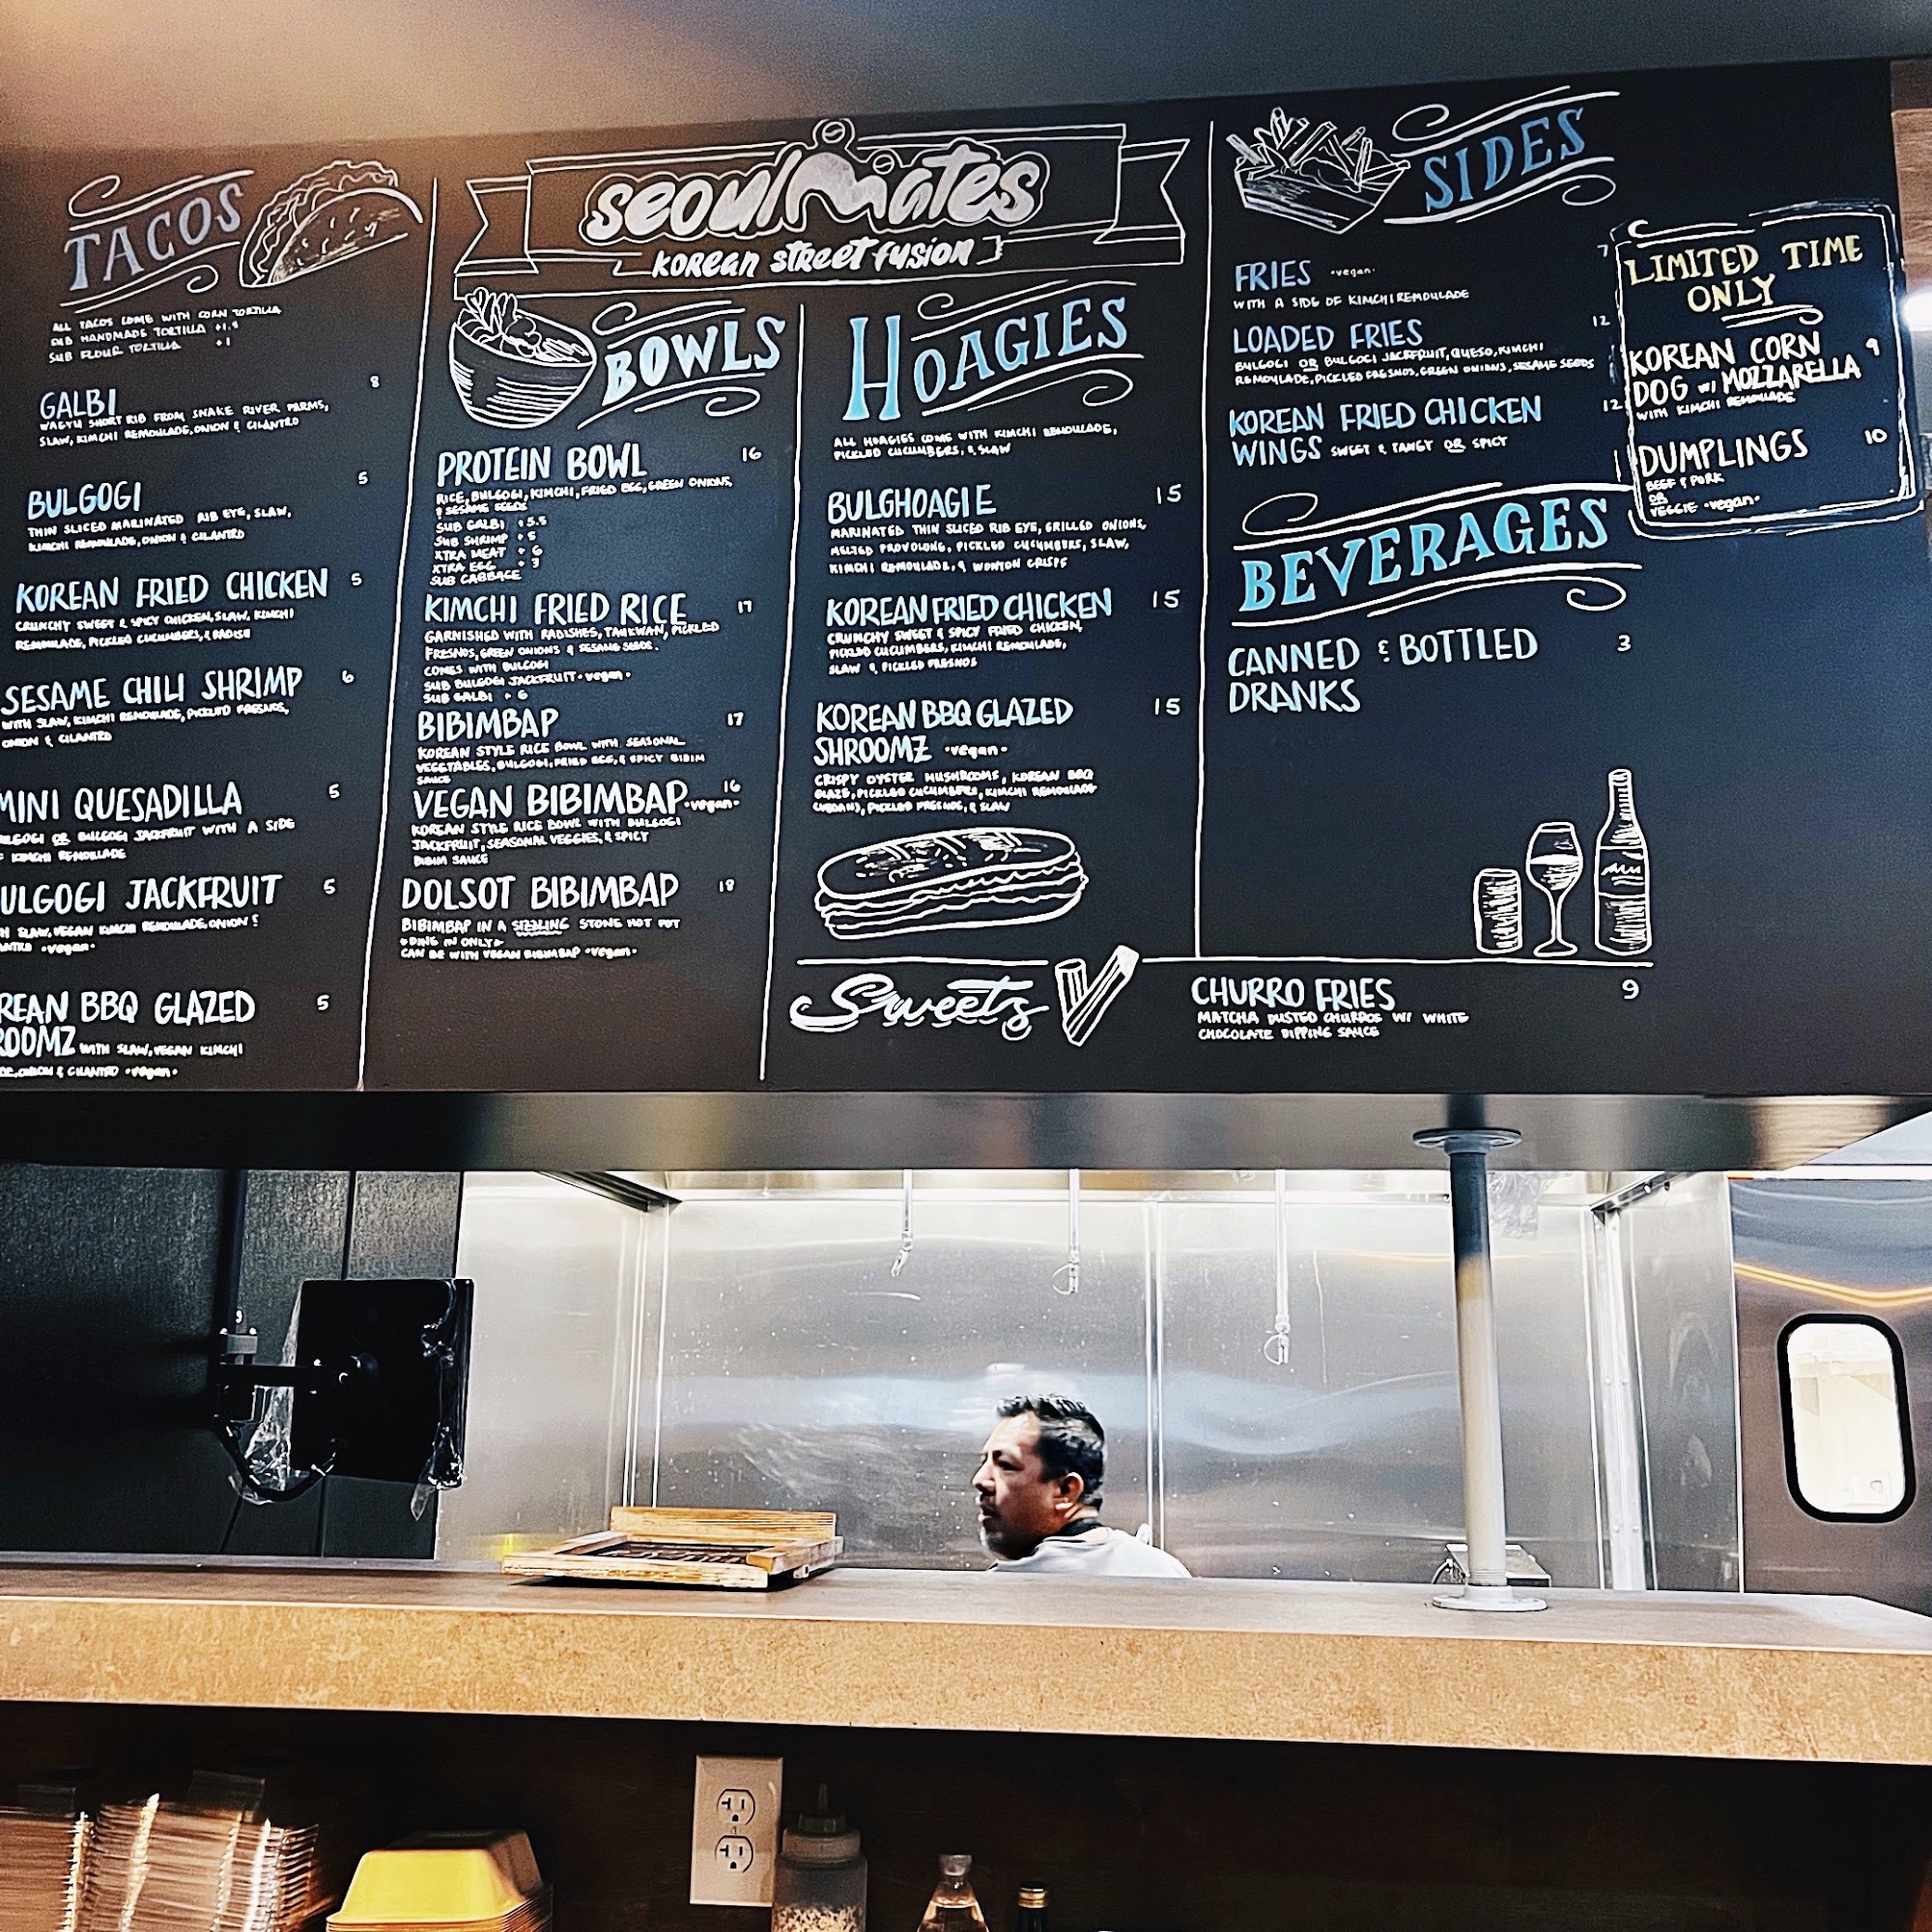 TACOS
ALL TACOS COME WITH CORN TORTILLA
SUB HANDMADE TORTILLA +1.5
SUB FLOUR TORTILLA +1
GALBI 8
WAGYU SHORT RIB FROM SNAKE RIVER FARMS,
SLAW, KIMCHI REMOULADE, ONION & CILANTRO
BULGOGI 5
THIN SLICED MARINATED RIB EYE, SLAW,
KIMCHI REMOULADE, ONION & CILANTRO
KOREAN FRIED CHICKEN 5
CRUNCHY SWEET & SPICY CHICKEN, SLAW, KIMCHI
REMOULADE, PICKLED CUCUMBERS, & RADISH
SESAME CHILI SHRIMP 6
WITH SLAW, KIMCHI REMOULADE, PICKLED FRESNOS,
ONION & CILANTRO
MINI QUESADILLA 5
BULGOGI OR BULGOGI JACKFRUIT WITH A SIDE
OF KIMCHI REMOULADE
ULGOGI JACKFRUIT 5
SLAW, VEGAN KIMCHI REMOULADE, ONION &
•vegan•
REAN BBQ GLAZED 5
ROOMZ WITH SLAW, VEGAN KIMCHI
ONION & CILANTRO •vegan•
seoulmates
korean street fusion
BOWLS
PROTEIN BOWL 16
RICE, BULGOGI, KIMCHI, FRIED EGG, GREEN ONIONS,
& SESAME SEEDS
SUB GALBI +5.5
SUB SHRIMP +5
XTRA MEAT +6
XTRA EGG +3
SUB CABBAGE
KIMCHI FRIED RICE 17
GARNISHED WITH RADISHES, TAIKWAN, PICKLED
FRESNOS, GREEN ONIONS & SESAME SEEDS.
COMES WITH BULGOGI
SUB BULGOGI JACKFRUIT •vegan•
SUB GALBI +6
BIBIMBAP 17
KOREAN STYLE RICE BOWL WITH SEASONAL
VEGETABLES, BULGOGI, FRIED EGG, & SPICY BIBIM
SAUCE
VEGAN BIBIMBAP •vegan• 16
KOREAN STYLE RICE BOWL WITH BULGOGI
JACKFRUIT, SEASONAL VEGGIES, & SPICY
BIBIM SAUCE
DOLSOT BIBIMBAP 18
BIBIMBAP IN A SIZZLING STONE HOT POT
*DINE IN ONLY*
CAN BE WITH VEGAN BIBIMBAP •vegan•
HOAGIES
ALL HOAGIES COME WITH KIMCHI REMOULADE,
PICKLED CUCUMBERS, & SLAW
BULGHOAGIE 15
MARINATED THIN SLICED RIB EYE, GRILLED ONIONS,
MELTED PROVOLONE, PICKLED CUCUMBERS, SLAW,
KIMCHI REMOULADE, & WONTON CRISPS
KOREAN FRIED CHICKEN 15
CRUNCHY SWEET & SPICY FRIED CHICKEN,
PICKLED CUCUMBERS, KIMCHI REMOULADE,
SLAW & PICKLED FRESNOS
KOREAN BBQ GLAZED 15
SHROOMZ •vegan•
CRISPY OYSTER MUSHROOMS, KOREAN BBQ
GLAZE, PICKLED CUCUMBERS, KIMCHI REMOULADE
(VEGAN), PICKLED FRESNOS, & SLAW
Sweets
CHURRO FRIES 9
MATCHA DUSTED CHURROS W/ WHITE
CHOCOLATE DIPPING SAUCE
SIDES
FRIES •vegan• 7
WITH A SIDE OF KIMCHI REMOULADE
LOADED FRIES 12
BULGOGI OR BULGOGI JACKFRUIT, QUESO, KIMCHI
REMOULADE, PICKLED FRESNOS, GREEN ONIONS, SESAME SEEDS
KOREAN FRIED CHICKEN 12
WINGS SWEET & TANGY OR SPICY
BEVERAGES
CANNED & BOTTLED 3
DRANKS
LIMITED TIME
ONLY
KOREAN CORN 9
DOG w/ MOZZARELLA
WITH KIMCHI REMOULADE
DUMPLINGS 10
BEEF & PORK
OR
VEGGIE •vegan•